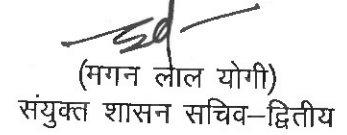 (मगन लाल योगी)
संयुक्त शासन सचिव–द्वितीय